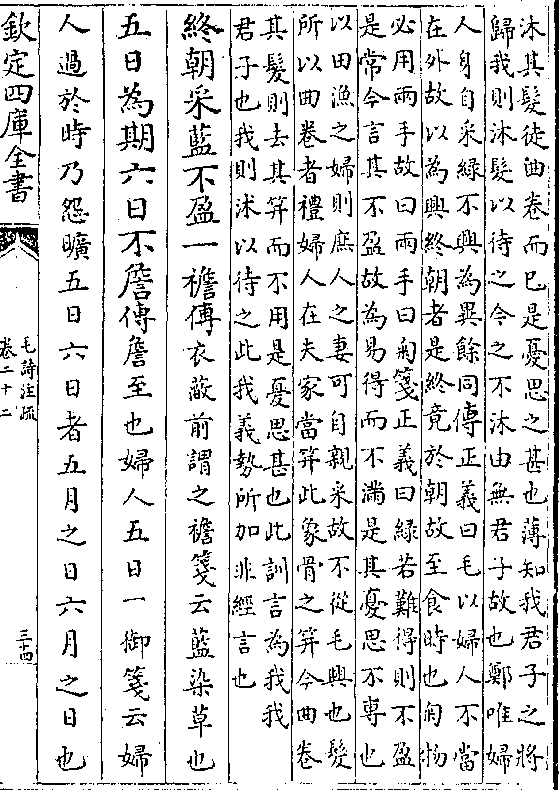 沐其髮徒曲卷而已是憂思之甚也薄知我君子之將
歸我則沐髮以待之今之不沐由無君子故也鄭唯婦
人身自采緑不興為異餘同傳正義曰毛以婦人不當
在外故以為興終朝者是終竟於朝故至食時也匊物
必用兩手故曰兩手曰匊箋正義曰緑若難得則不盈
是常今言其不盈故為易得而不滿是其憂思不専也
以田漁之婦則庶人之妻可自親采故不從毛興也髮
所以曲卷者禮婦人在夫家當笄此象骨之笄今曲卷
其髮則去其笄而不用是憂思甚也此訓言為我我
君子也我則沐以待之此我義勢所加非經言也
終朝采藍不盈一襜傳衣蔽前謂之襜箋云藍染草也
五日為期六日不詹傳詹至也婦人五日一御箋云婦
人過於時乃怨曠五日六日者五月之日六月之日也
欽定四庫全書
毛詩注疏
卷二十二
三十四